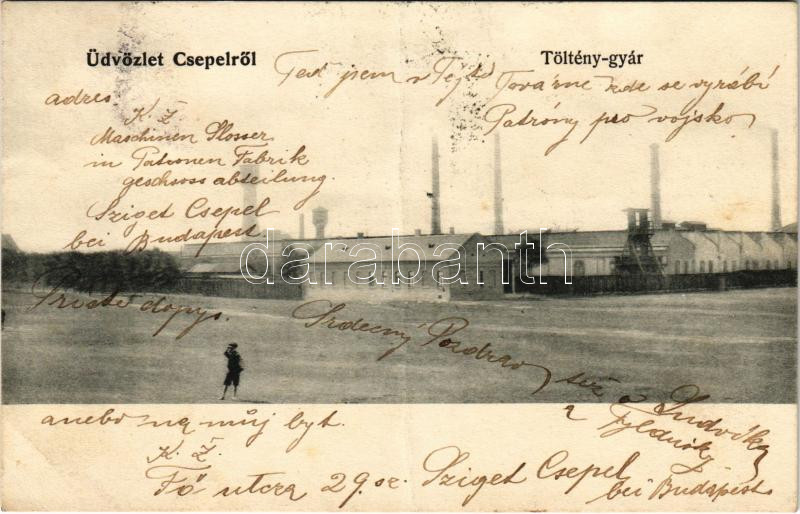 Üdvözlet Csepelről
Töltény-gyár
Teď jsem v
Továrně kde se vyrábí
Patróny pro vojsko
adres
K. Z.
Maschinen Slosser
in Patronen Fabrik
geschsoss abteilung.
Sziget Csepel
bei Budapest.
darabanth
Příště dopys.
Srdečný Pozdrav
anebo na můj byt.
K. Z.
Fő utcza 29. sz. Sziget Csepel
bei Budapest